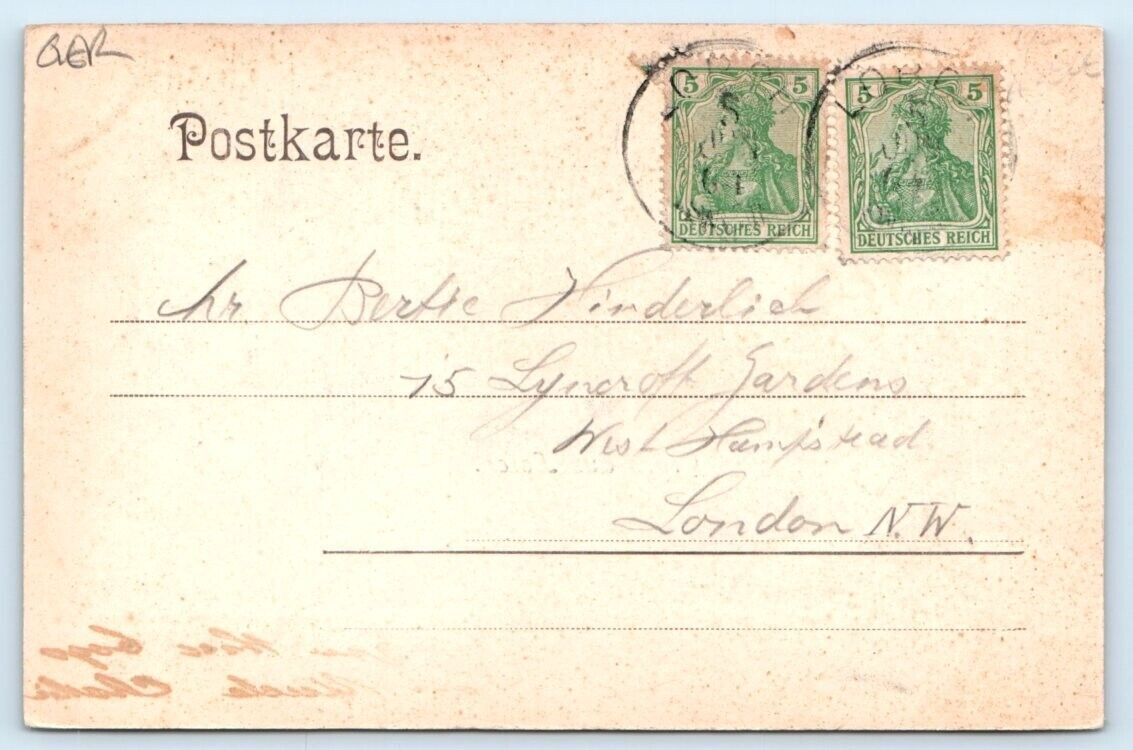 GER
Postkarte.
5 5 5 5
DEUTSCHES REICH DEUTSCHES REICH
Mr. Bertie Hinderlich
75 Lyncroft Gardens
West Hampstead
London N.W.